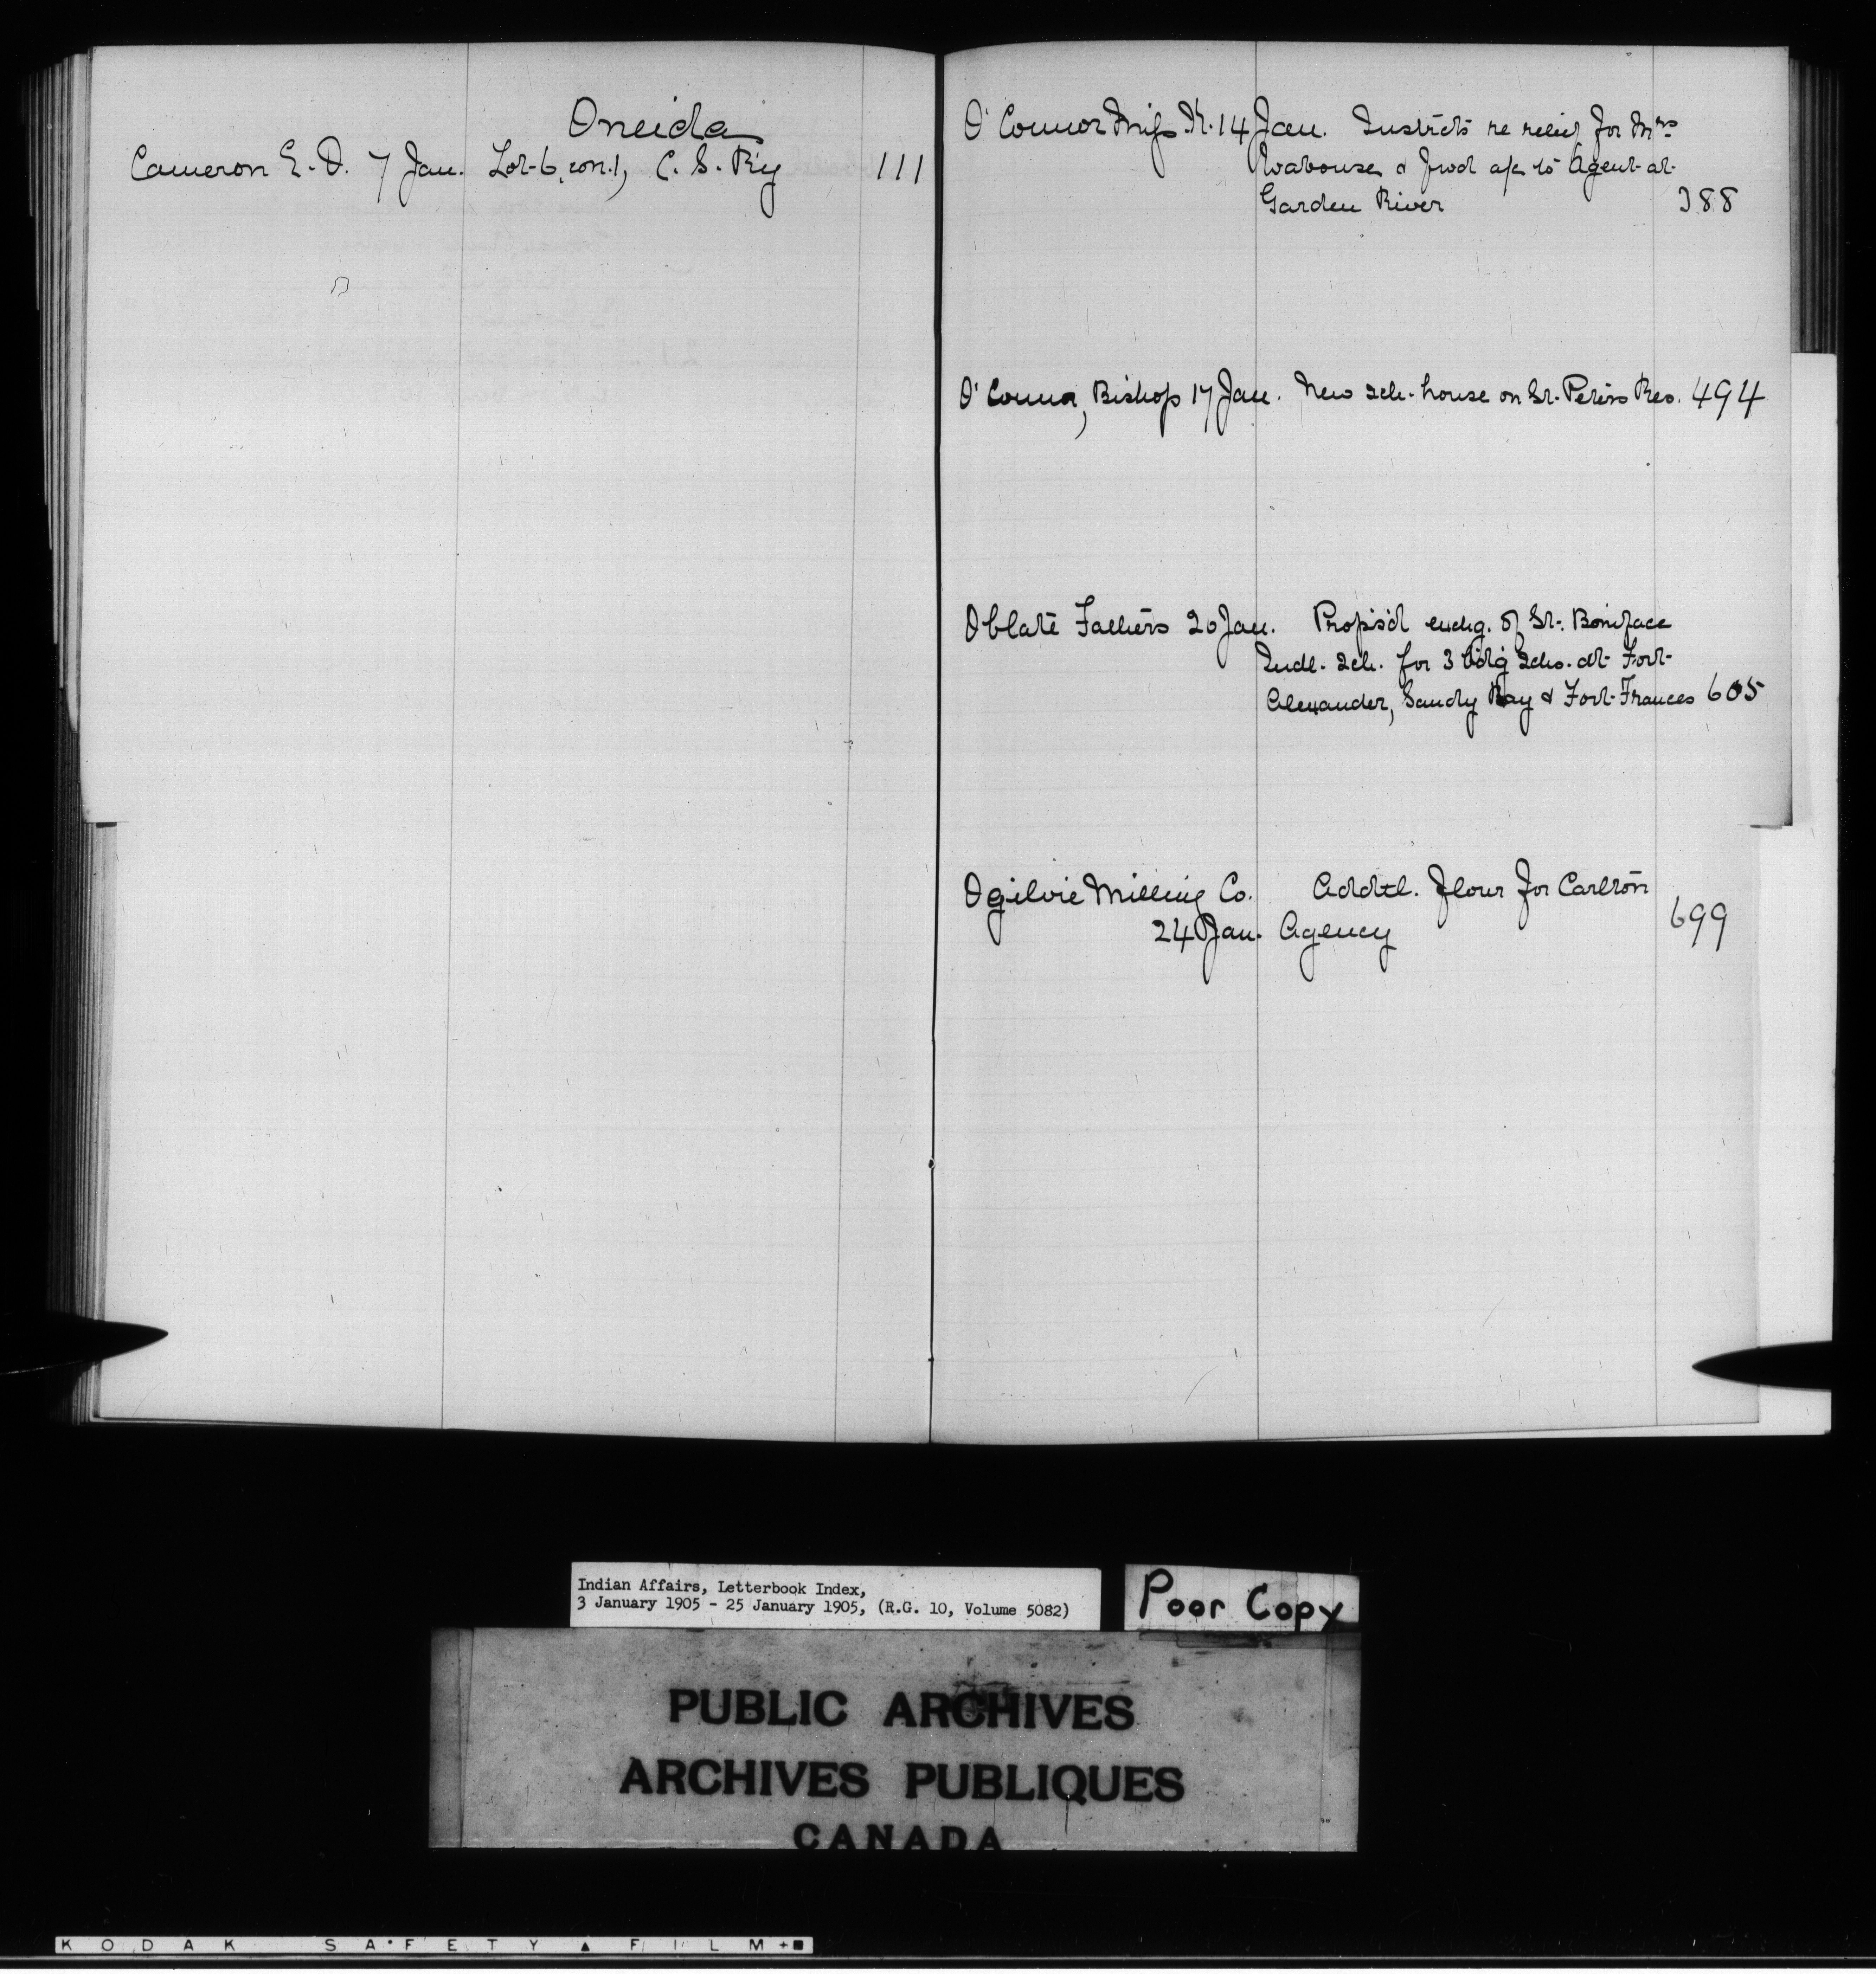 Oneida
Cameron E. D. 7 Jan. Lot 6, con. 1, C. S. R'y 111
O'Connor Miss K. 14 Jan. Instrcts re relief for Mrs
Wabouse & fwd a/c to Agent at
Garden River 388
O'Connor, Bishop 17 Jan. New sch. house on St. Peters Res. 494
Oblate Fathers 20 Jan. Propos'd exchg. of St. Boniface
Indl. Sch. for 3 bdg Schs. at Fort
Alexander, Sandy Bay & Fort Frances 605
Ogilvie Milling Co. Addtl. flour for Carlton
24 Jan. Agency 699
Indian Affairs, Letterbook Index,
3 January 1905 - 25 January 1905, (R.G. 10, Volume 5082)
Poor Copy
PUBLIC ARCHIVES
ARCHIVES PUBLIQUES
CANADA
KODAK SAFETY ▲ FILM +■